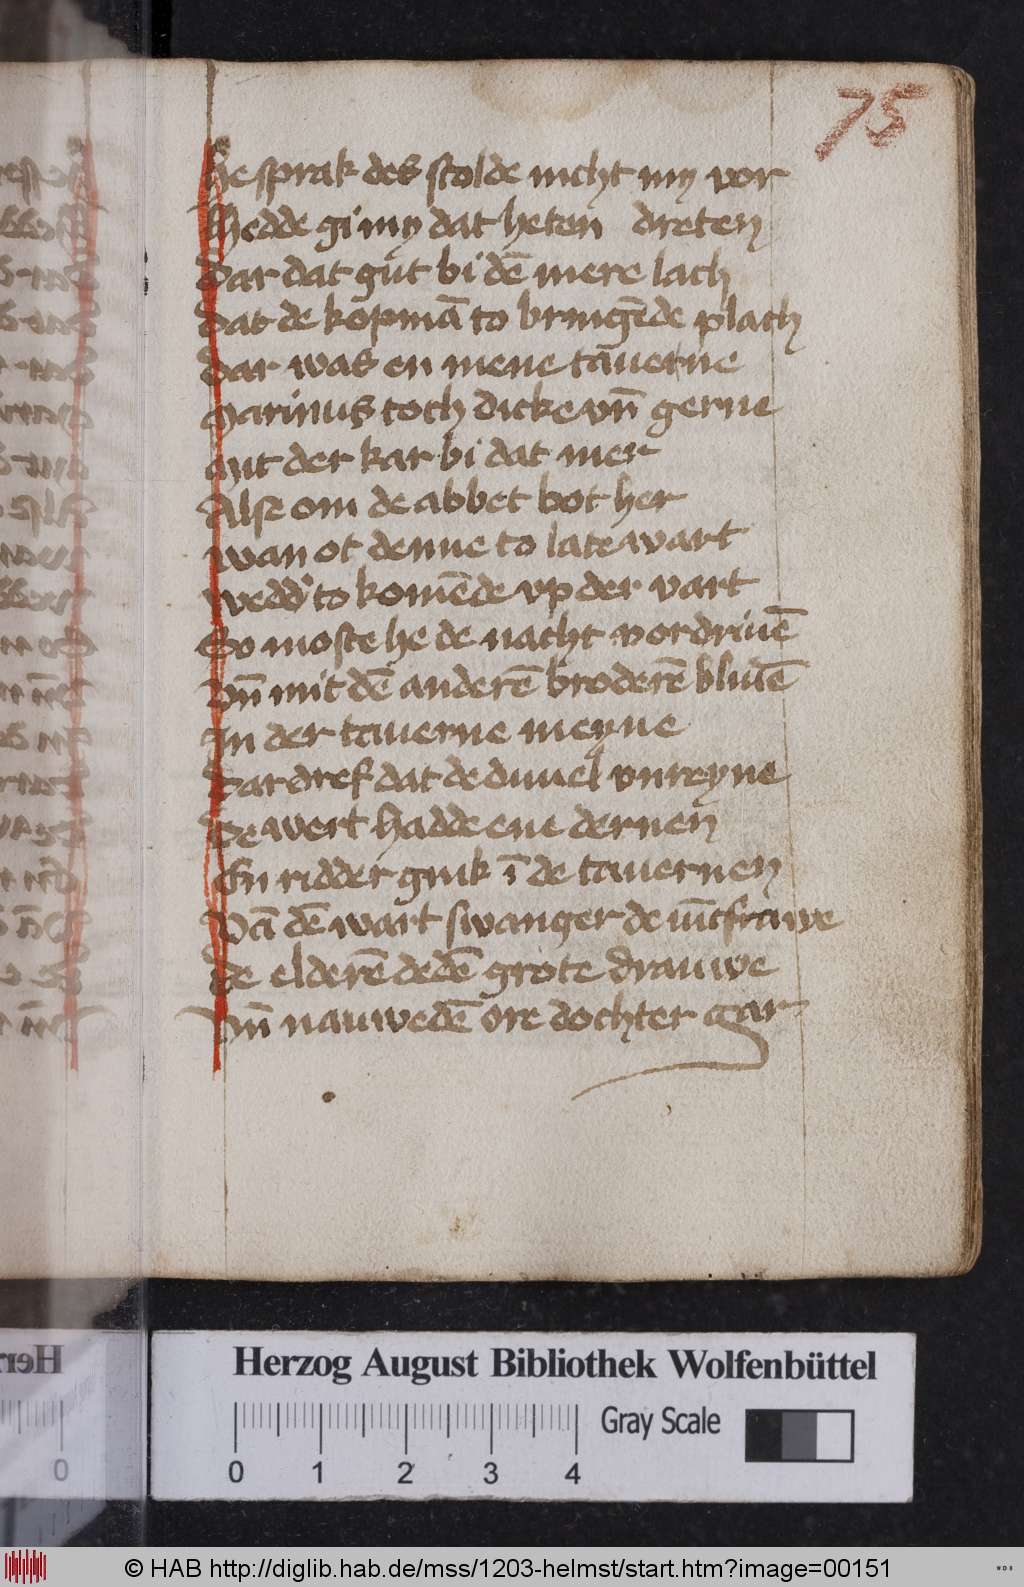 75
He sprak des scolde nicht my vor
Hedde gi my dat heten dreten
Dar dat gut bi dē mere lach
Dat de kopmā to bringēde plach
Dar was en mene tauerne
Marinus toch dicke vn̄ gerne
Myt der kar bi dat mer
Alse om de abbet bot her
Wan ot denne to late wart
Wedd' to komēde vp der vart
So moste he de nacht vordriuē
Vn̄ mit dē anderē broderē bliuē
In der tauerne meyne
Dar dref dat de duuel vnreyne
De wert hadde ene dernen
En ridder gink ī de tauernen
Vā dē wart swanger de iūcfrawe
De elderē dedē grote drauwe
Vn̄ nauwedē ore dochter gar
Herzog August Bibliothek Wolfenbüttel
Gray Scale
0 1 2 3 4
0
© HAB http://diglib.hab.de/mss/1203-helmst/start.htm?image=00151